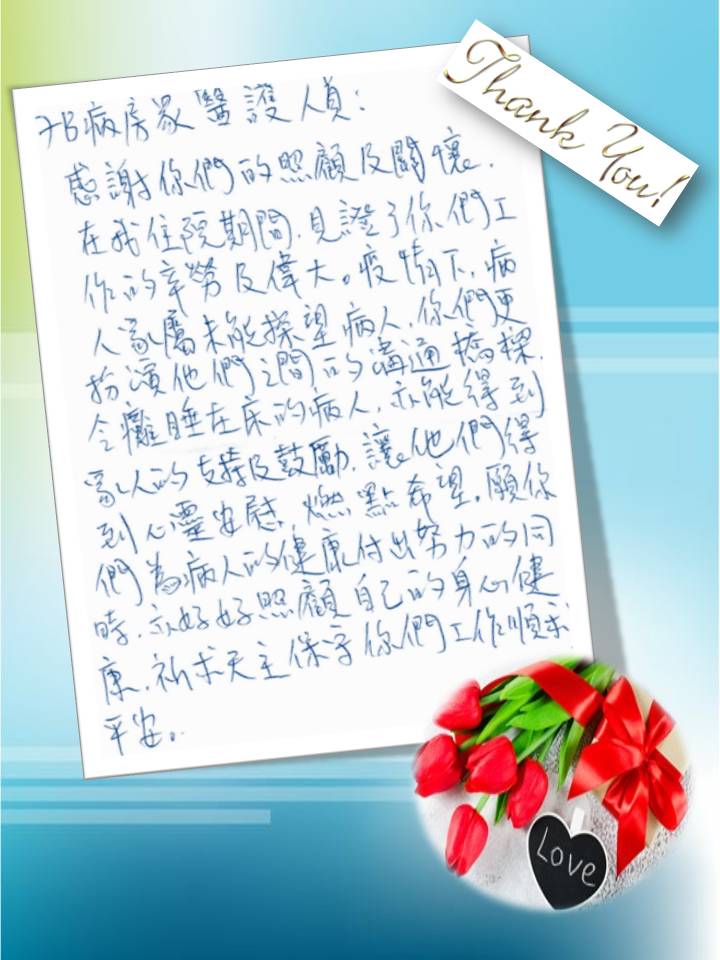 Thank You!
7B病房眾醫護人員:
感謝你們的照顧及關懷.
在我住院期間.見證了你們工
作的辛勞及偉大。疫情下,病
人家屬未能探望病人,你們更
扮演他們之間的溝通橋樑.
令癱睡在床的病人,亦能得到
家人的支持及鼓勵.讓他們得
到心靈安慰,燃點希望.願你
們為病人的健康付出努力的同
時.亦好好照顧自己的身心健
康.祈求天主保守你們工作順利
平安。
Love